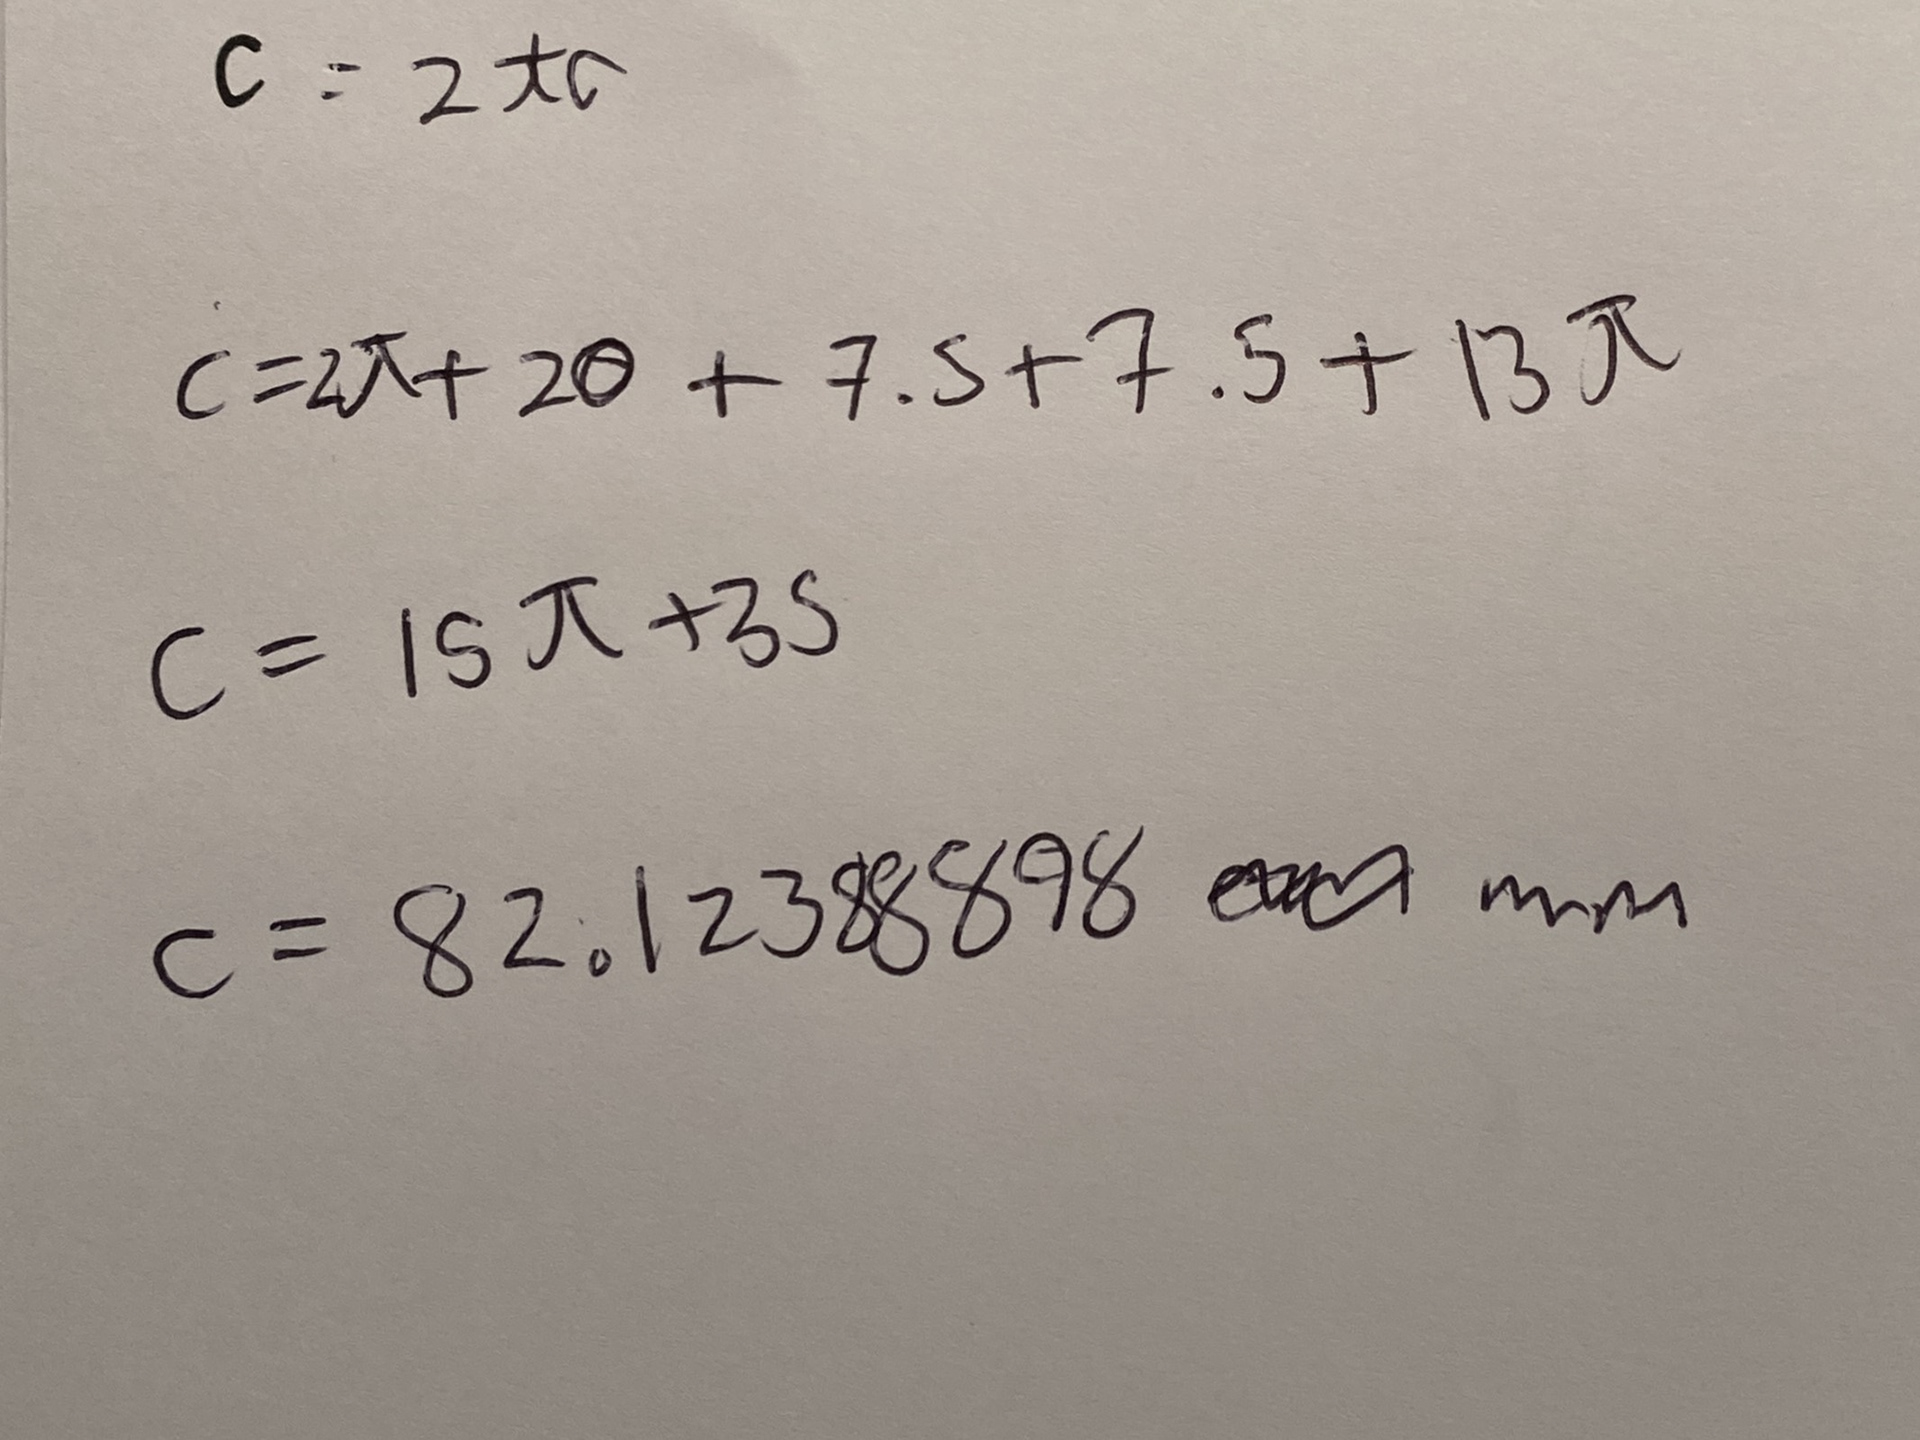 C = 2πr
C=2π+20 + 7.5+7.5+13π
C= 15π+35
C= 82.12388898 mm